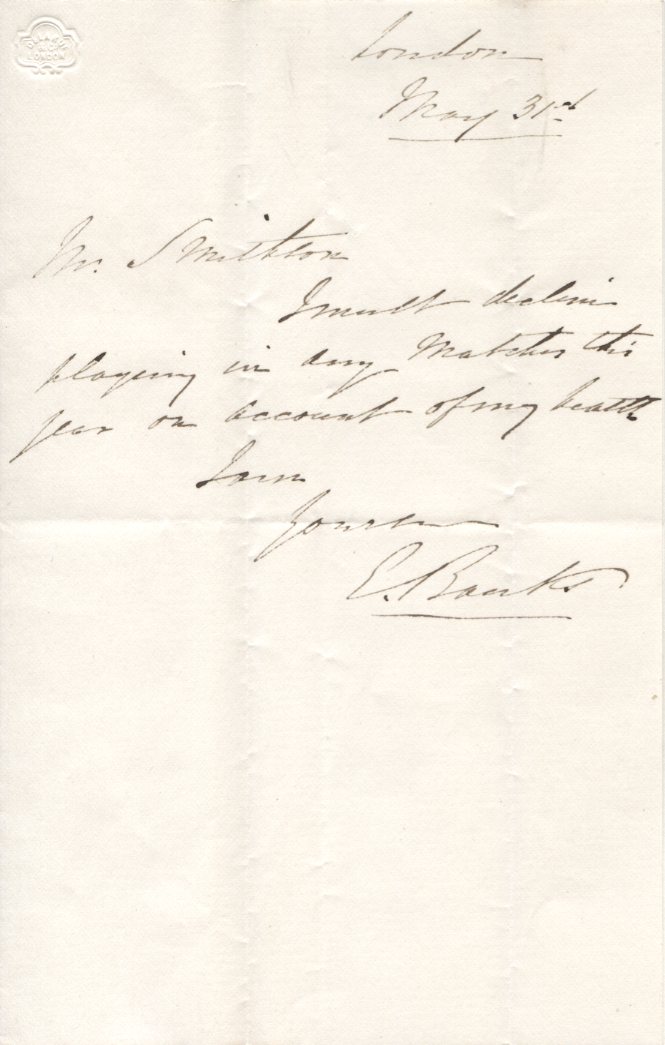 London
May 31st
Mr. Smithson
I must decline
playing in any Matches this
year on account of my health
I am
Yours
E. Banks